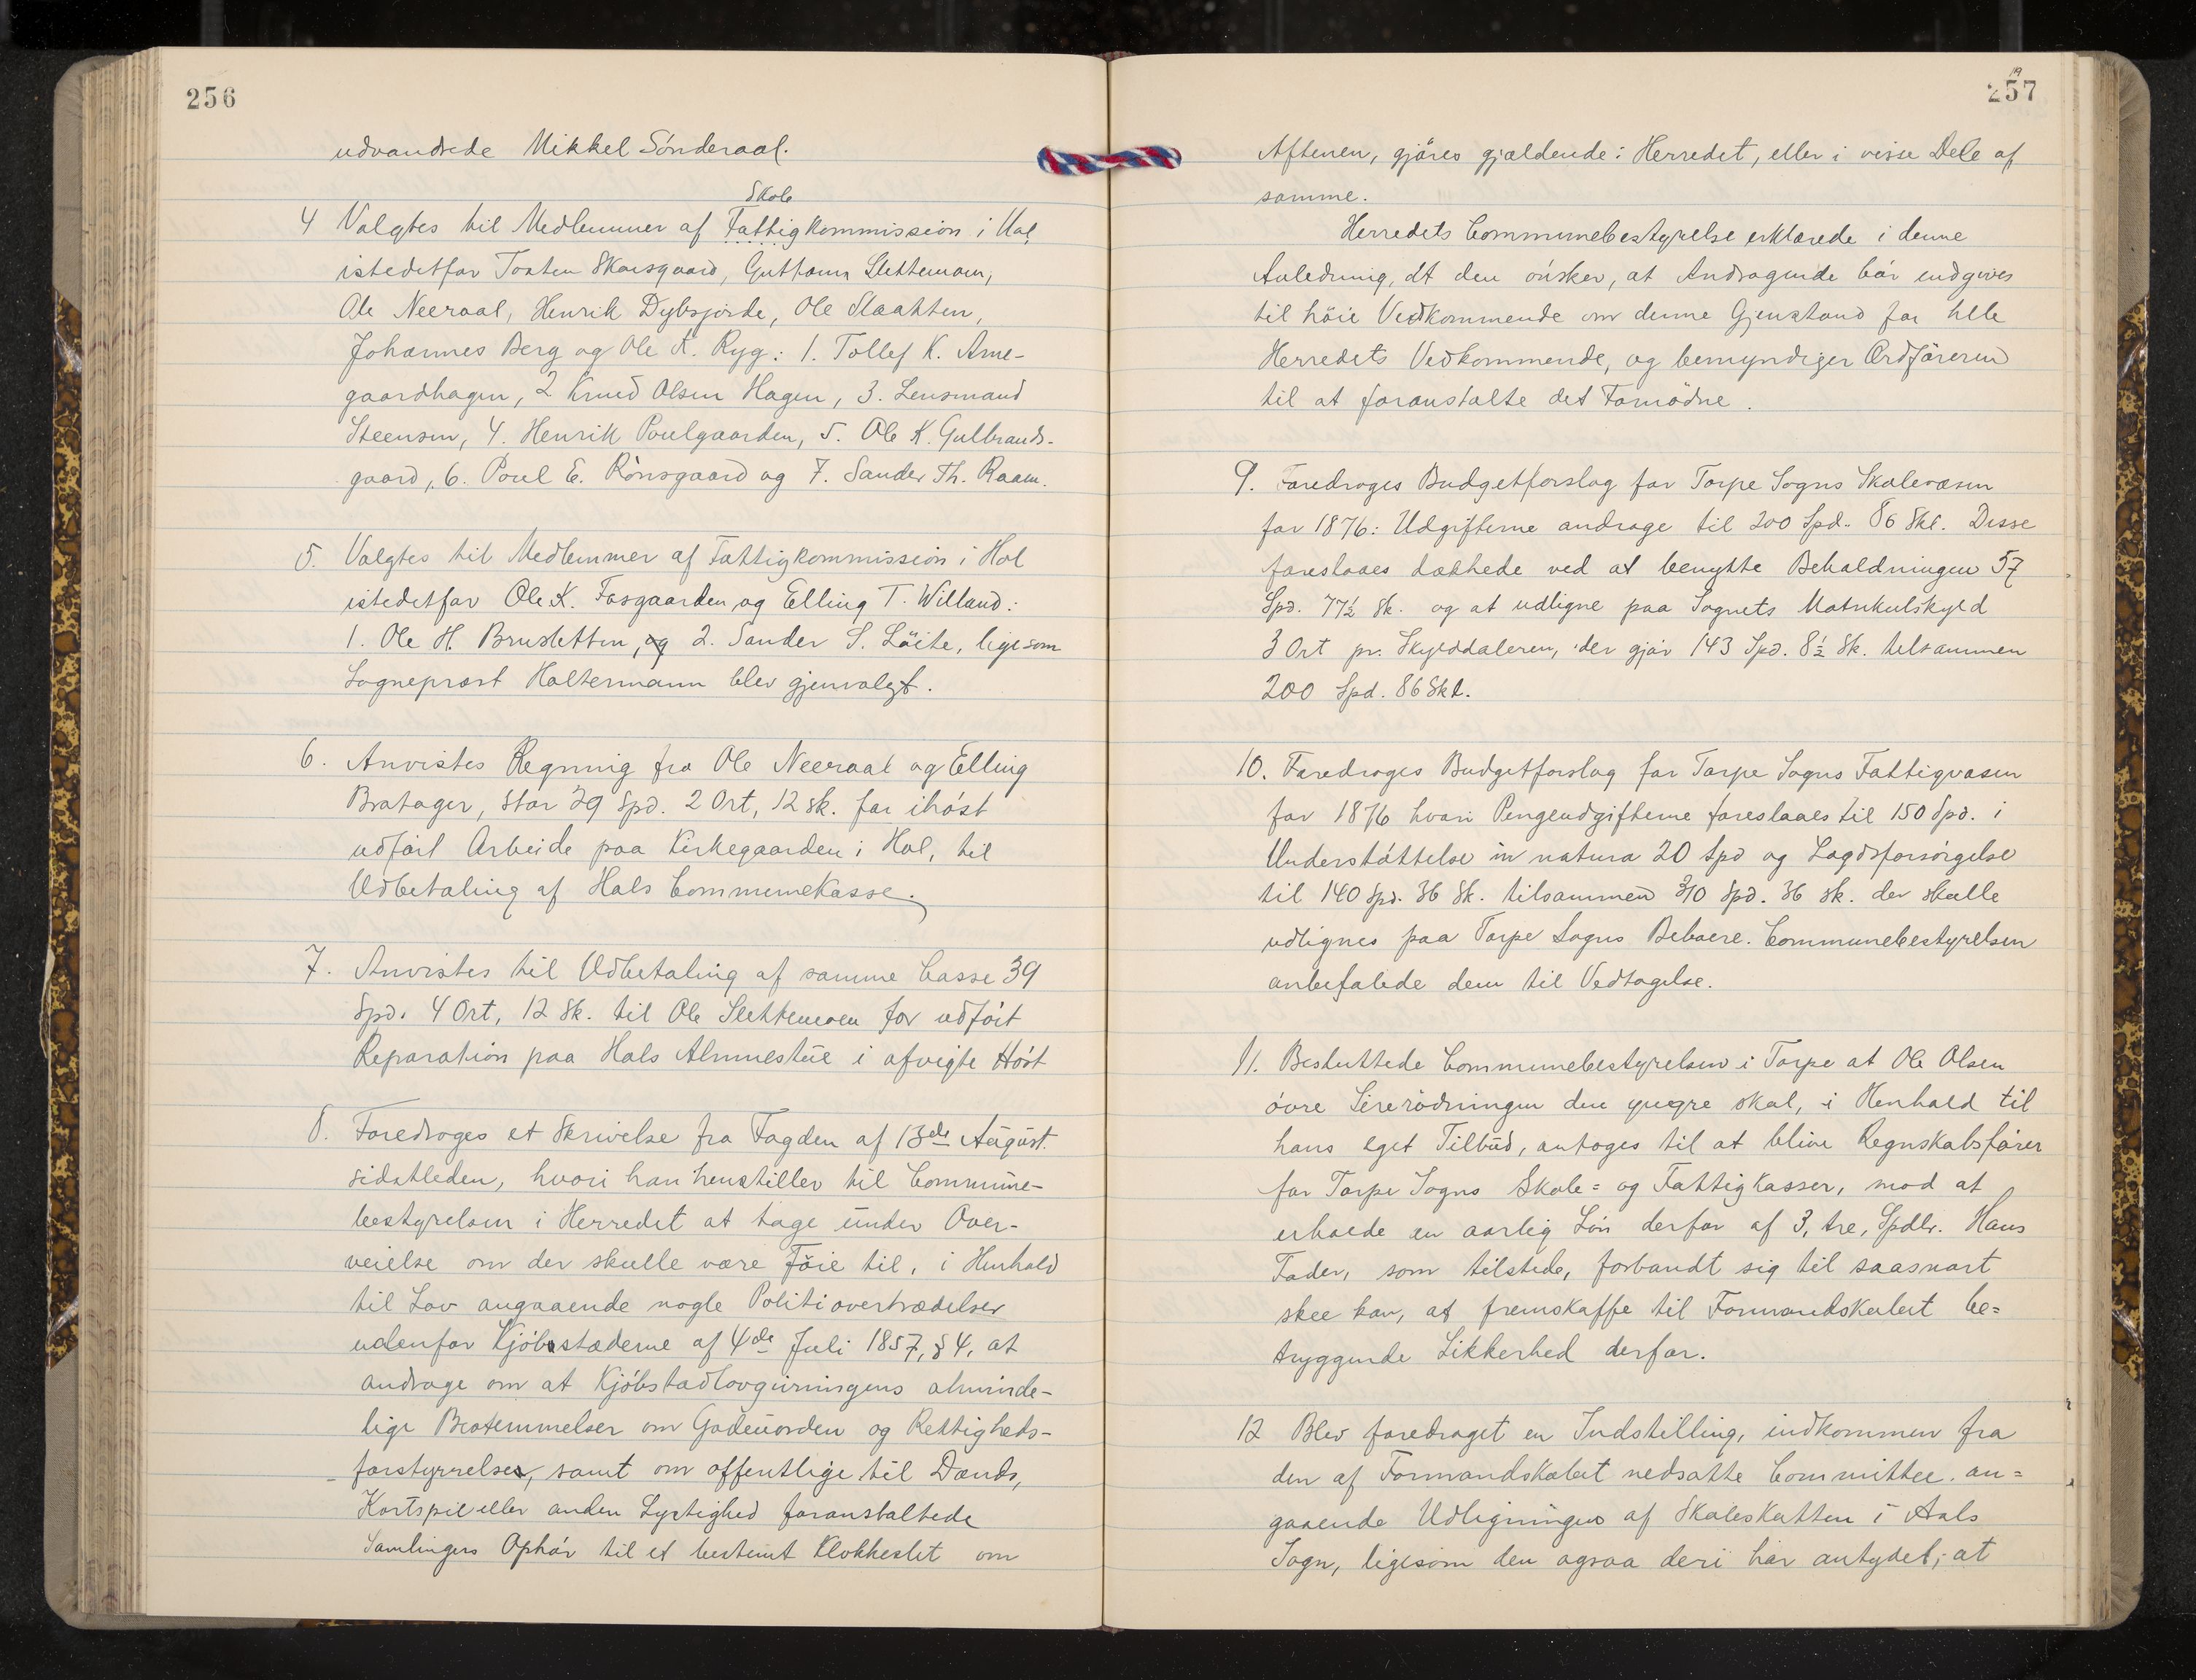 256
udvandrede Mikkel Sønderaal.
Skole
4 Valgtes til Medlemmer af Fattigkommission i Hol
istedetfor Tosten Skarsgaard, Guttorm Slettemoen,
Ole Neeraal, Henrik Dybsjorde, Ole Slaatten,
Johannes Berg og Ole K. Ryg: 1. Tollef K. Arne-
gaardhagen, 2 Knud Olsen Hagen, 3. Lensmand
Steensen, 4. Henrik Poulgaarden, 5. Ole K. Gulbrands-
gaard, 6. Poul E. Rønsgaard og 7. Sander Th. Raaen.
5. Valgtes til Medlemmer af Fattigkommission i Hol
istedetfor Ole K. Fosgaarden og Elling T. Willand:
1. Ole H. Brusletten, og 2. Sander S. Löite, ligesom
Sognepræst Holtermann blev gjenvalgt.
6. Anvistes Regning fra Ole Neeraal og Elling
Bratager, stor 29 Spd. 2 Ort, 12 sk. for ihøst
udført Arbeide paa Kirkegaarden i Hol, til
Udbetaling af Hols Communekasse.
7. Anvistes til Udbetaling af samme Casse 39
Spd. 4 Ort, 12 Sk. til Ole Slettemoen for udført
Reparation paa Hols Almuestue i afvigte Høst
8. Foredroges et Skrivelse fra Fogden af 13de August
sidstleden, hvori han henstiller til Commune-
bestyrelsen i Herredet at tage under Over-
veielse om der skulle være Föie til, i Henhold
til Lov angaaende nogle Politiovertrædelser
udenfor Kjøbstæderne af 4de Juli 1857, § 4, at
andrage om at Kjøbstadlovgivningens alminde-
lige Bestemmelser om Gadeuorden og Rettigheds-
forstyrrelser, samt om offentlige til Dands,
Kortspil eller anden Lystighed foranstaltede
Samlingers Ophør til et bestemt Klokkeslet om
257
Aftenen, gjöres gjældende i Herredet, eller i visse Dele af
samme.
Herredets Communebestyrelse erklærede i denne
Anledning, at den ønsker, at Andragende bør indgives
til höie Vedkommende om denne Gjenstand for hele
Herredets Vedkommende, og bemyndiger Ordföreren
til at foranstalte det Fornödne.
9. Foredroges Budgetforslag for Torpe Sogns Skolevæsen
for 1876: Udgifterne andrage til 200 Spd. 86 Skl. Disse
foreslaaes dækkede ved at benytte Beholdningen 57
Spd. 77½ sk. og at udligne paa Sognets Matrikulskyld
3 Ort pr. Skylddaleren, der gjør 143 Spd. 8½ Sk. tilsammen
200 Spd. 86 Skl.
10. Foredroges Budgetforslag for Torpe Sogns Fattigvæsen
for 1876 hvori Pengeudgifterne foreslaaes til 150 Spd. i
Understøttelse in natura 20 Spd og Lægdsforsørgelse
til 140 Spd. 36 Sk. tilsammen 310 Spd. 36 sk. der skulle
udlignes paa Torpe Sogns Beboere. Communebestyrelsen
anbefalede dem til Vedtagelse.
11. Besluttede Communebestyrelsen i Torpe at Ole Olsen
övre Sirerødningen den yngre skal, i Henhold til
hans eget Tilbud, antages til at blive Regnskabsfører
for Torpe Sogns Skole= og Fattigkasser, mod at
erholde en aarlig Løn derfor af 3, tre, Spdlr. Hans
Fader, som tilstede, forbandt sig til saasnart
skee kan, at fremskaffe til Formandskabet be=
tryggende Sikkerhed derfor.
12 Blev foredraget en Indstilling, indkommen fra
den af Formandskabet nedsatte Committee an=
gaaende Udligningen af Skoleskatten i Aals
Sogn, ligesom den ogsaa deri har antydet, at